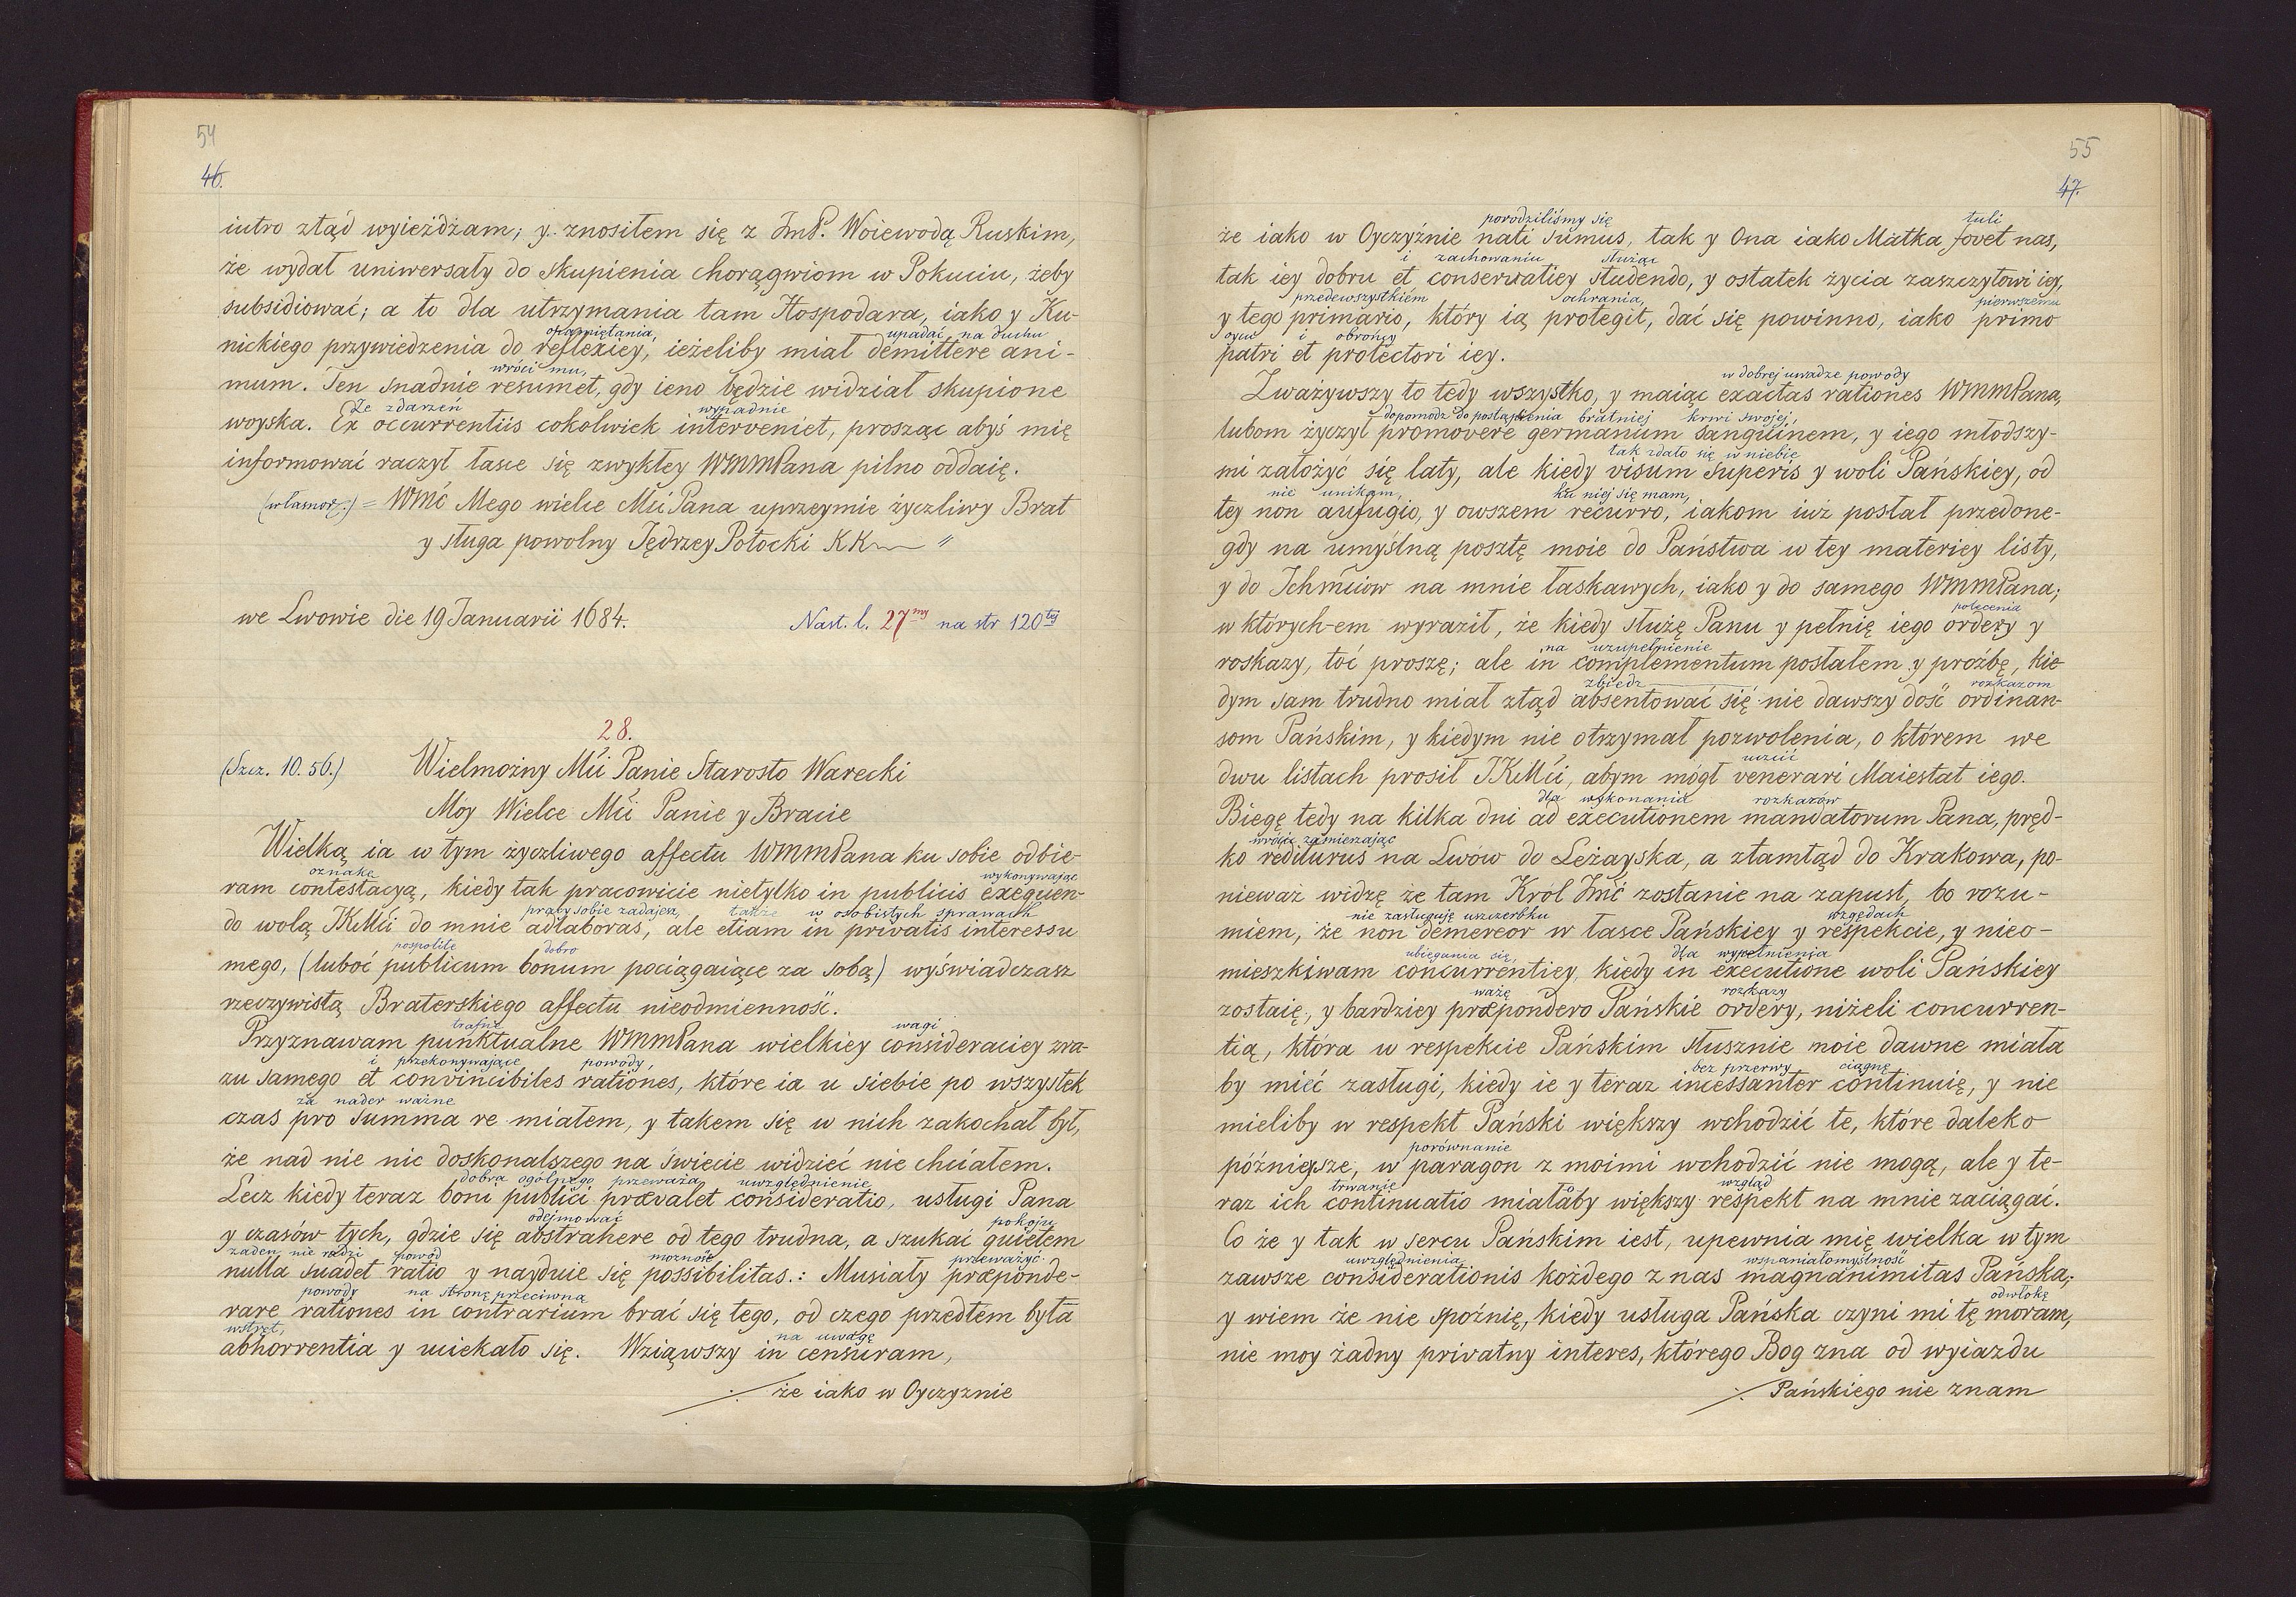 54
46.
iutro ztąd wyieżdżam; y znosiłem się z JmP. Woiewodą Ruskim,
że wydał uniwersały do skupienia chorągwiom w Pokuciu, żeby
subsidiować; a to dla utrzymania tam Hospodara, iako y Ku-
opamiętania, upadać na duchu
nickiego przywiedzenia do reflexiey, ieżeliby miał demittere ani-
wróci mu,
mum. Ten snadnie resumet, gdy ieno będzie widział skupione
Ze zdarzeń wypadnie
woyska. Ex occurrentiis cokolwiek interveniet, prosząc abyś mię
informować raczył łasce się zwykłey WMMPana pilno oddaię.
(własnor.) = WMć Mego wielce Mći Pana uprzeymie życzliwy Brat
y sługa powolny Jędrzey Potocki KK "
we Lwowie die 19 Januarii 1684.
Nast. l. 27my na str 120tej
28.
(Szcz. 10. 56.) Wielmożny Mći Panie Starosto Warecki
Móy Wielce Mći Panie y Bracie
Wielką ia w tym życzliwego affectu WMMPana ku sobie odbie-
oznakę wykonywając
ram contestacyą, kiedy tak pracowicie nietylko in publicis exequen-
pracy sobie zadajesz, także w osobistych sprawach
do wolą JKMći do mnie adlaboras, ale etiam in privatis interessu
pospolite dobro
mego, (luboć publicum bonum pociągaiące za sobą) wyświadczasz
rzeczywistą Braterskiego affectu nieodmienność.
trafne wagi
Przyznawam punktualne WMMPana wielkiey consideraciey zra-
i przekonywające powody,
zu samego et convincibiles rationes, które ia u siebie po wszystek
za nader ważne
czas pro summa re miałem, y takem się w nich zakochał był,
że nad nie nic doskonalszego na świecie widzieć nie chciałem.
dobra ogólnego przeważa uwzględnienie
Lecz kiedy teraz boni publici prævalet consideratio, usługi Pana
odejmować pokoju
y czasów tych, gdzie się abstrahere od tego trudna, a szukać quietem
żaden nie radzi powód możność przeważyć
nulla suadet ratio y nayduie się possibilitas.: Musiały præponde-
powody na stronę przeciwną
rare rationes in contrarium brać się tego, od czego przedtem była
wstręt, na uwagę
abhorrentia y uciekało się. Wziąwszy in censuram,
./. że iako w Oyczyznie
55
47.
porodziliśmy się tuli
że iako w Oyczyźnie nati sumus, tak y Ona iako Matka fovet nas,
i zachowaniu służąc
tak iey dobru et conservatiey studendo, y ostatek życia zaszczytowi iey,
przedewszystkiém ochrania, pierwszemu
y tego primario, który ią protegit, dać się powinno, iako primo
ojcu i obrońcy
patri et protectori iey.
w dobrej uwadze powody
Zważywszy to tedy wszystko, y maiąc exactas rationes WMMPana,
dopomódz do postąpienia bratniej krwi swojej,
lubom życzył promovere germanum sanguinem, y iego młodszy-
tak zdało się w niebie
mi założyć się laty, ale kiedy visum superis y woli Pańskiey, od
nie unikam, ku niej się mam,
tey non aufugio, y owszem recurro, iakom iuż posłał przedone-
gdy na umyślną posztę moie do Państwa w tey materiey listy,
y do Ichmściow na mnie łaskawych, iako y do samego WMMPana;
polecenia
w których-em wyraził, że kiedy służę Panu y pełnię iego ordery y
na uzupełnienie
roskazy, toć proszę; ale in complementum posłałem y proźbę, kie-
zbiedz rozkazom
dym sam trudno miał ztąd absentować się nie dawszy dość ordinan-
som Pańskim, y kiedym nie otrzymał pozwolenia, o którem we
uczcić
dwu listach prosił JKMći, abym mógł venerari Maiestat iego.
dla wykonania rozkazów
Biegę tedy na kilka dni ad executionem mandatorum Pana, pręd-
wrócić zamierzając
ko rediturus na Lwów do Leżayska, a ztamtąd do Krakowa, po-
nieważ widzę że tam Król Jmć zostanie na zapust, bo rozu-
nie zasługuję uszczerbku względach
miem, że non demereor w łasce Pańskiey y respekcie, y nieo-
ubiegania się, dla wypełnienia
mieszkiwam concurrentiey, kiedy in executione woli Pańskiey
ważę rozkazy
zostaię, y bardziey præpondero Pańskie ordery, niżeli concurren-
tią, która w respekcie Pańskim słusznie moie dawne miała
bez przerwy ciągnę
by mieć zasługi, kiedy ie y teraz incessanter continuię, y nie
mieliby w respekt Pański większy wchodzić te, które daleko
porównanie
późnieysze, w paragon z moimi wchodzić nie mogą, ale y te-
trwanie wzgląd
raz ich continuatio miałaby większy respekt na mnie zaciągać.
Co że y tak w sercu Pańskim iest, upewnia mię wielka w tym
uwzględnienia wspaniałomyślność
zawsze considerationis każdego z nas magnanimitas Pańska;
odwłokę
y wiem że nie spoźnię, kiedy usługa Pańska czyni mi tę moram,
nie moy żadny privatny interes, którego Bog zna od wyiazdu
./. Pańskiego nie znam